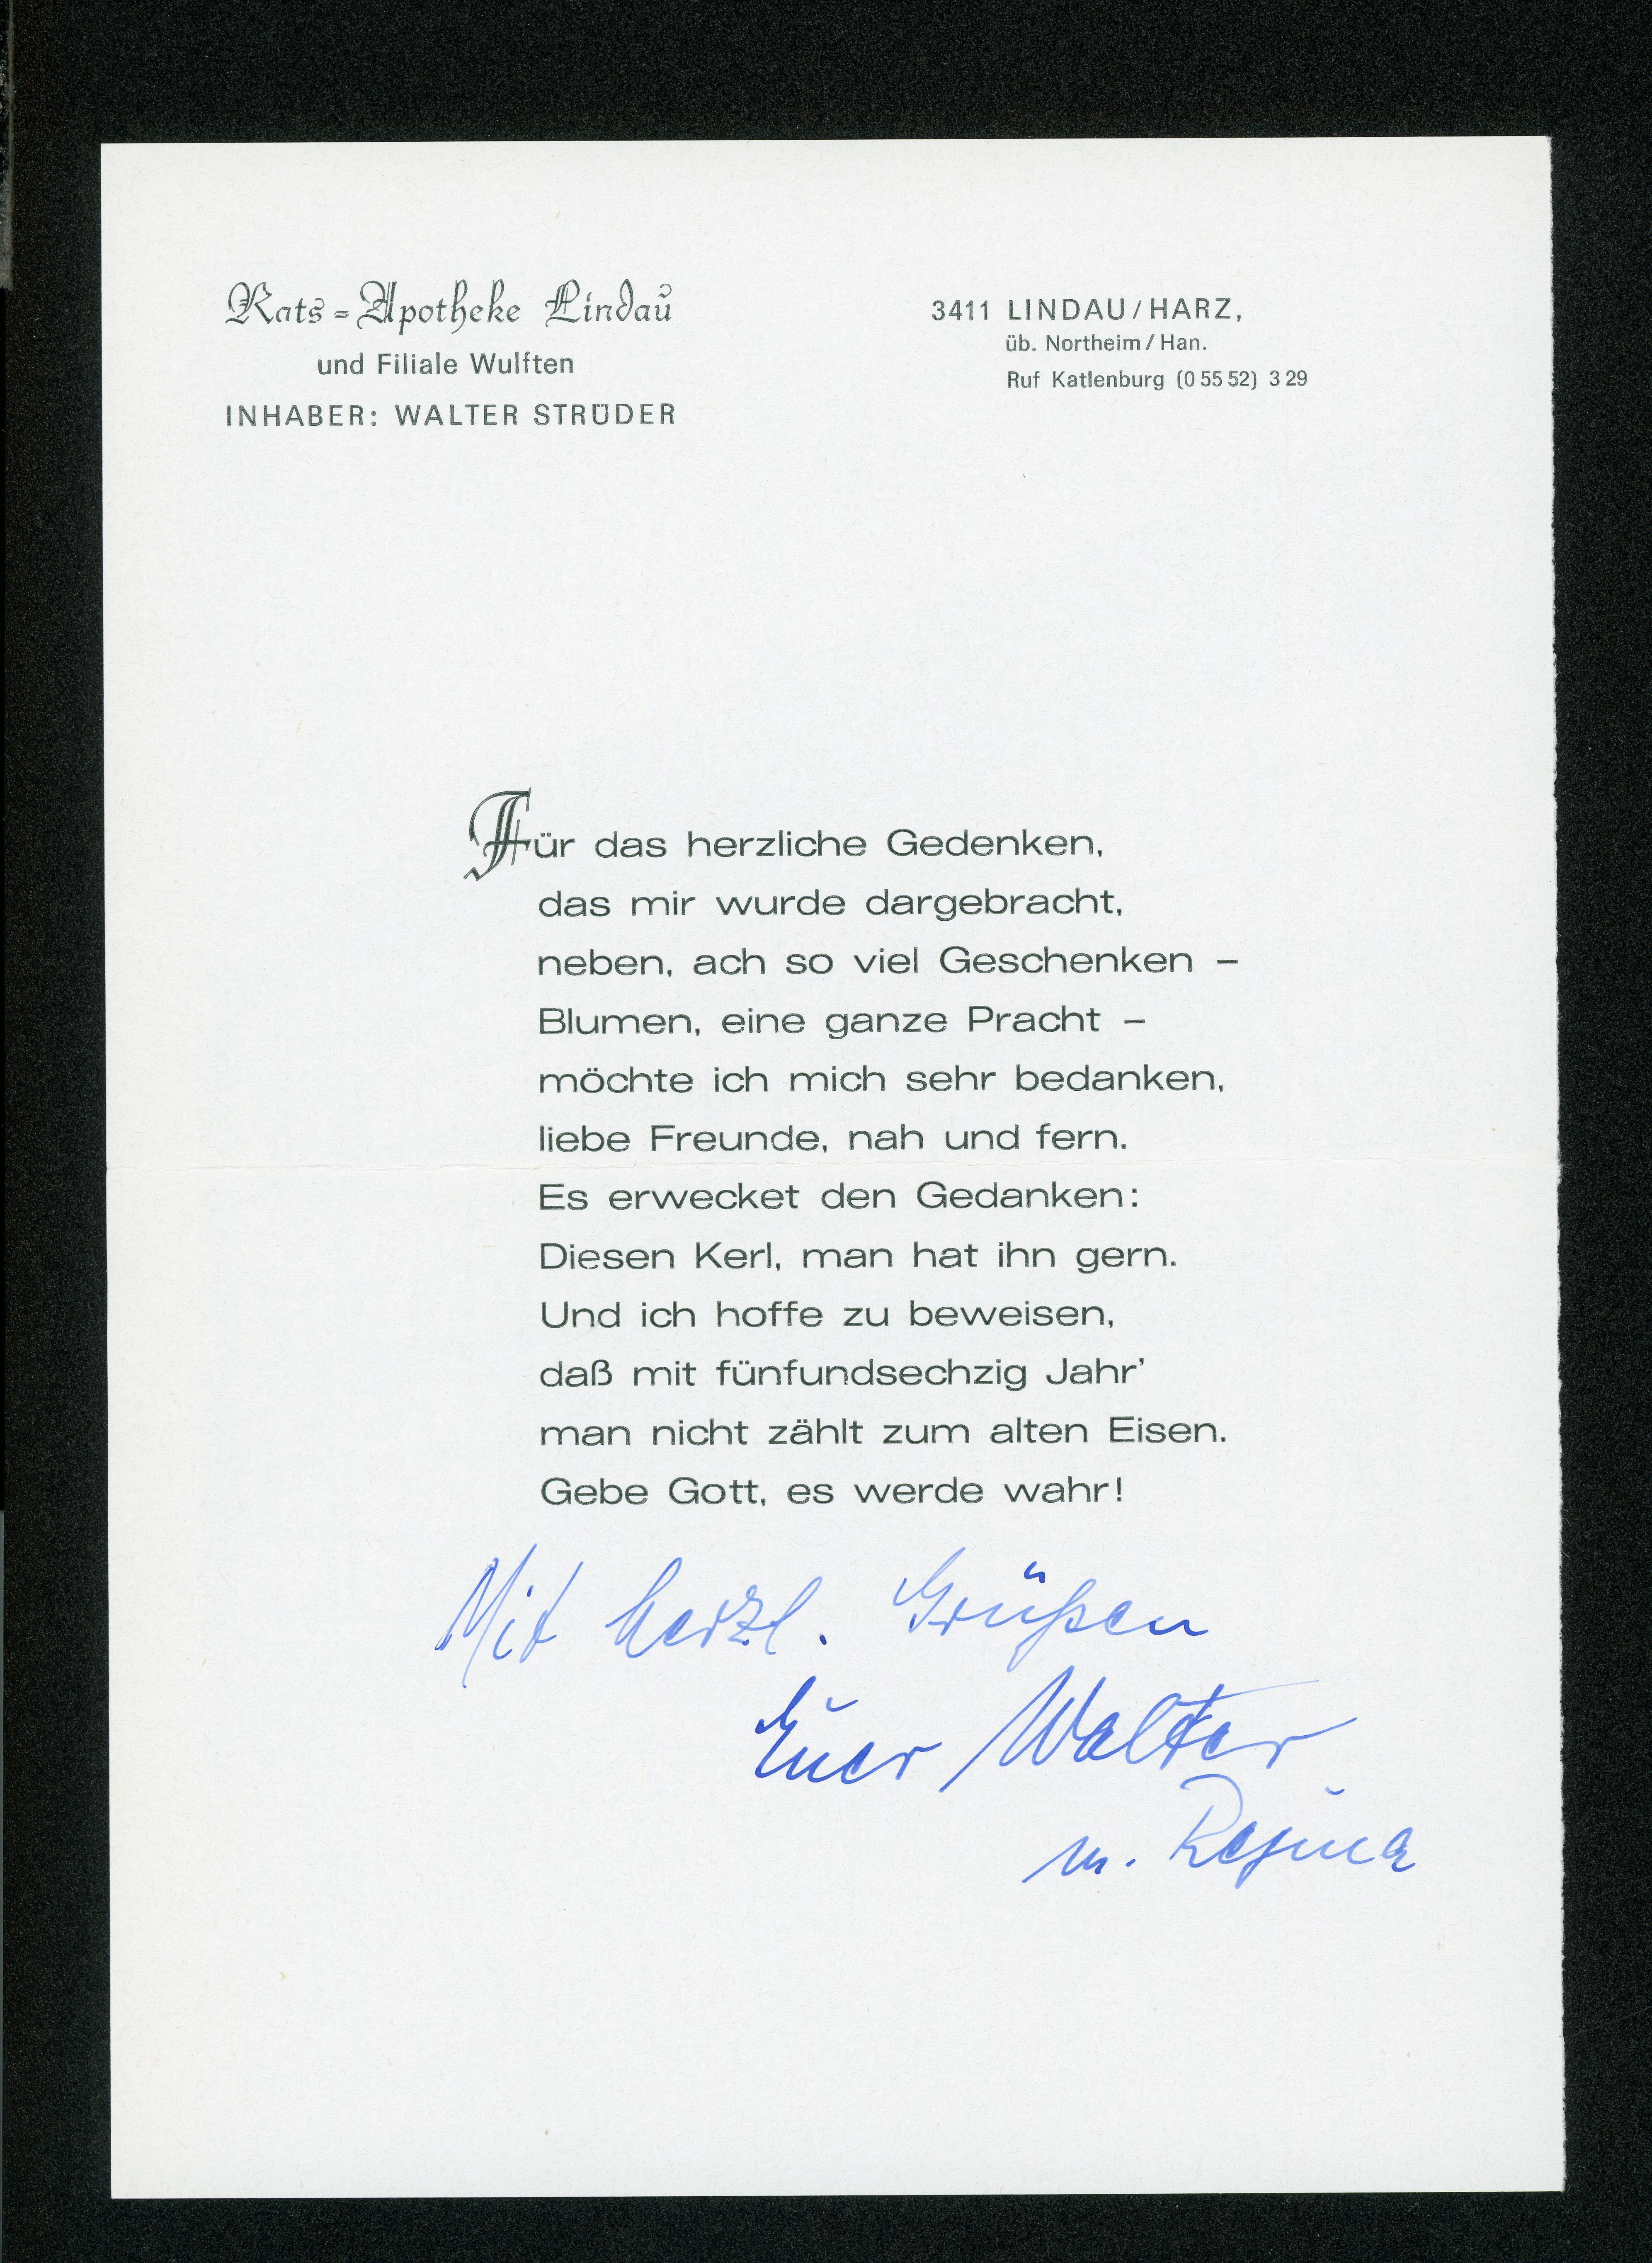 Rats=Apotheke Lindau
und Filiale Wulften
INHABER: WALTER STRÜDER
3411 LINDAU/HARZ,
üb. Northeim/Han.
Ruf Katlenburg (0 55 52) 3 29
Für das herzliche Gedenken,
das mir wurde dargebracht,
neben, ach so viel Geschenken –
Blumen, eine ganze Pracht –
möchte ich mich sehr bedanken,
liebe Freunde, nah und fern.
Es erwecket den Gedanken:
Diesen Kerl, man hat ihn gern.
Und ich hoffe zu beweisen,
daß mit fünfundsechzig Jahr'
man nicht zählt zum alten Eisen.
Gebe Gott, es werde wahr!
Mit herzl. Grüßen
Euer Walter
m. Regina